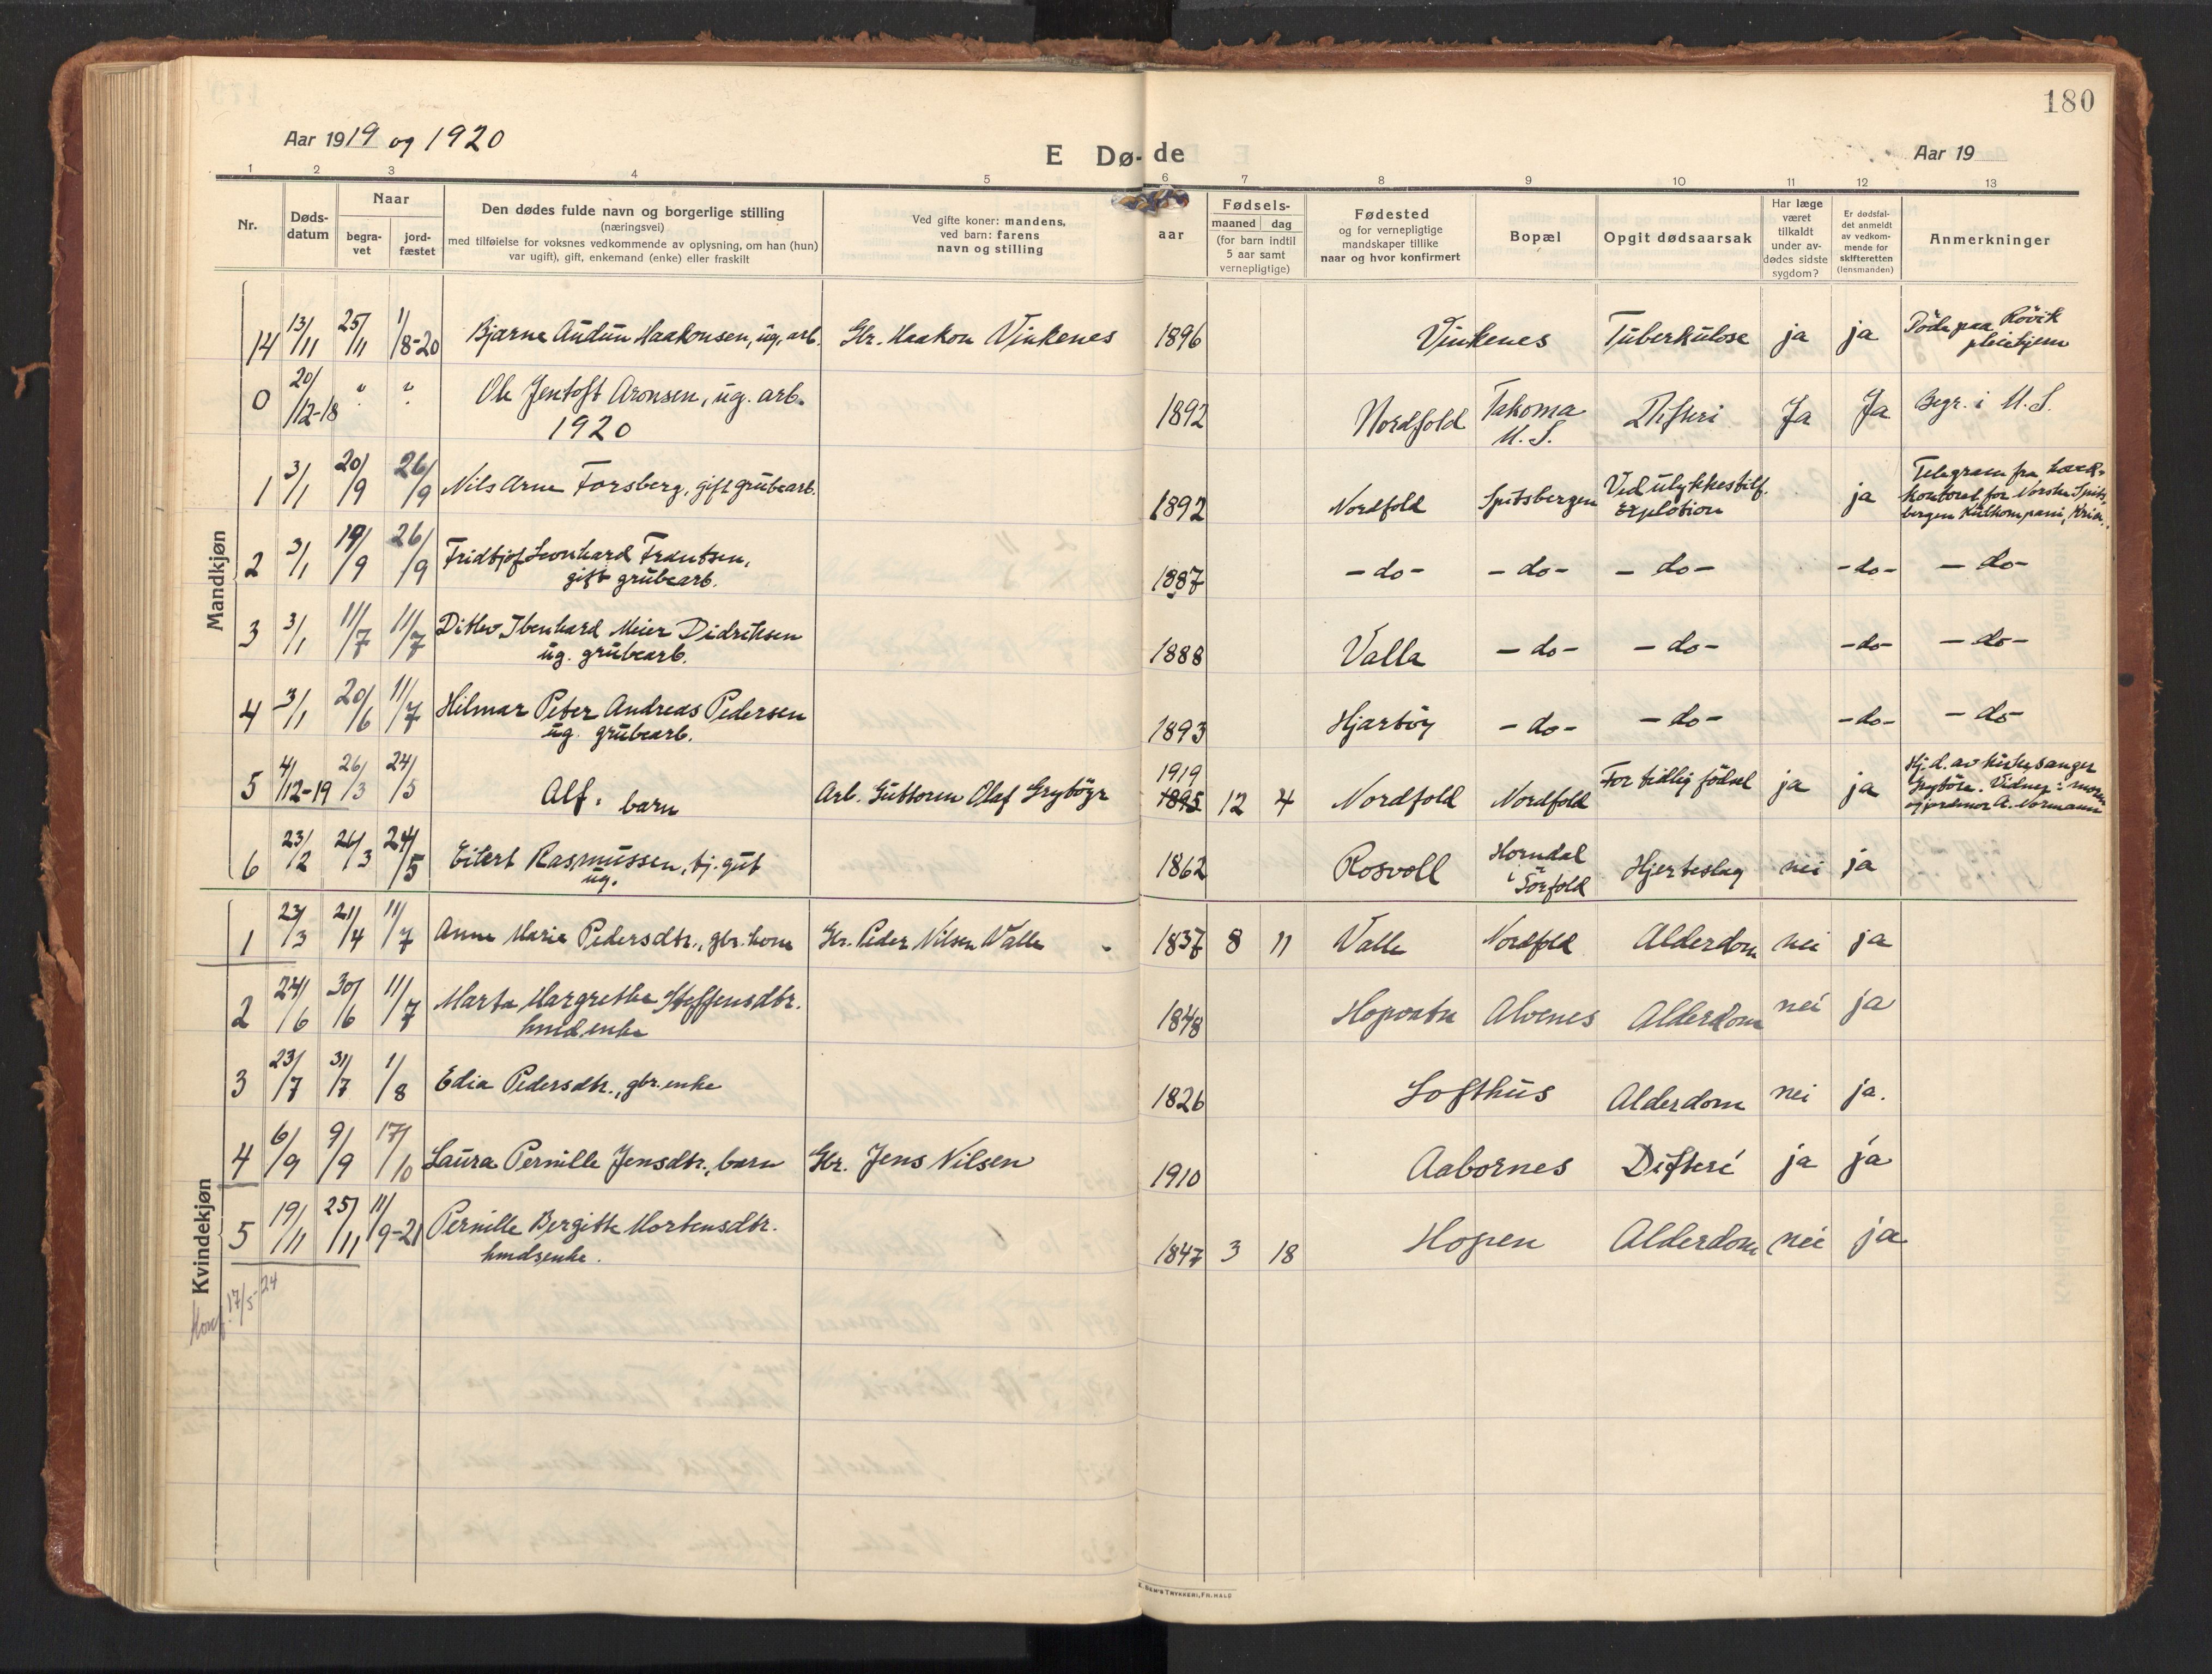 180
Aar 1919 og 1920
E Dø- de
Aar 19
1 2 3 4 5 6 7 8 9 10 11 12 13
Nr.
Døds-
datum
Naar
begra-
vet
jord-
fæstet
Den dødes fulde navn og borgerlige stilling
(næringsvei)
med tilføielse for voksnes vedkommende av oplysning, om han (hun)
var ugift), gift, enkemand (enke) eller fraskilt
Ved gifte koner: mandens,
ved barn: farens
navn og stilling
aar
Fødsels-
maaned dag
(for barn indtil
5 aar samt
vernepligtige)
Fødested
og for vernepligtige
mandskaper tillike
naar og hvor konfirmert
Bopæl
Opgit dødsaarsak
Har læge
været
tilkaldt
under av-
dødes sidste
sygdom?
Er dødsfal-
det anmeldt
av vedkom-
mende for
skifteretten
(lensmanden)
Anmerkninger
Mandkjøn
14 13/11 25/11 1/8-20 Bjarne Audun Haakonsen, ug. arb. Gbr. Haakon Vinkenes 1896 Vinkenes Tuberkulose ja ja Döde paa Rövik
pleiehjem
0 20/12-18 " " Ole Jentoft Aronsen, ug. arb. 1892 Nordfold Takoma
U.S. Difteri Ja Ja Begr. i U.S.
1920
1 3/1 20/9 26/9 Nils Arne Forsberg, gift grubearb. 1892 Nordfold Spitsbergen Ved ulykkestilf.
Explotion ja Telegram fra
kontoret for Norske Spits
bergen Kulkompani, Kria.
2 3/1 19/9 26/9 Fridtjof Leonhard Frantsen,
gift grubearb. 1887 - do - - do - - do - - do - - do -
3 3/1 11/7 11/7 Ditlev Ibenhard Meier Didriksen
ug. grubearb. 1888 Valla - do - - do - - do - - do -
4 3/1 20/6 11/7 Hilmar Peter Andreas Pedersen
ug. grubearb. 1893 Hjartöy - do - - do - - do - - do -
5 4/12-19 26/3 24/5 Alf, barn Arb. Guttorm Olaf 1919
1895 12 4 Nordfold Nordfold For tidlig födsel ja ja Hj.d. av kirkesanger
Vidner: moren
og jordmor A. Normann
6 23/2 26/3 24/5 Eilert Rasmussen, tj. gut
ug. 1862 Rosvoll Horndal
i Sörfold Hjerteslag nei ja
Kvindekjøn
1 23/3 21/4 11/7 Anne Marie Pedersdtr., gbr. kone Gbr. Peder Nilsen Valle 1837 8 11 Valle Nordfold Alderdom nei ja
2 24/6 30/6 11/7 Marta Margrethe Steffensdtr.
hmd.enke 1848 Hopvatn Alvenes Alderdom nei ja
3 23/7 31/7 1/8 Edia Pedersdtr., gbr. enke 1826 Lofthus Alderdom nei ja.
4 6/9 9/9 17/10 Laura Pernille Jensdtr., barn Gbr. Jens Nilsen 1910 Aabornes Difteri ja ja
5 19/11 25/11 11/9-21 Pernille Bergitte Mortensdtr.
hmdsenke. 1847 3 18 Hopen Alderdom nei ja
Konf. 17/5-24